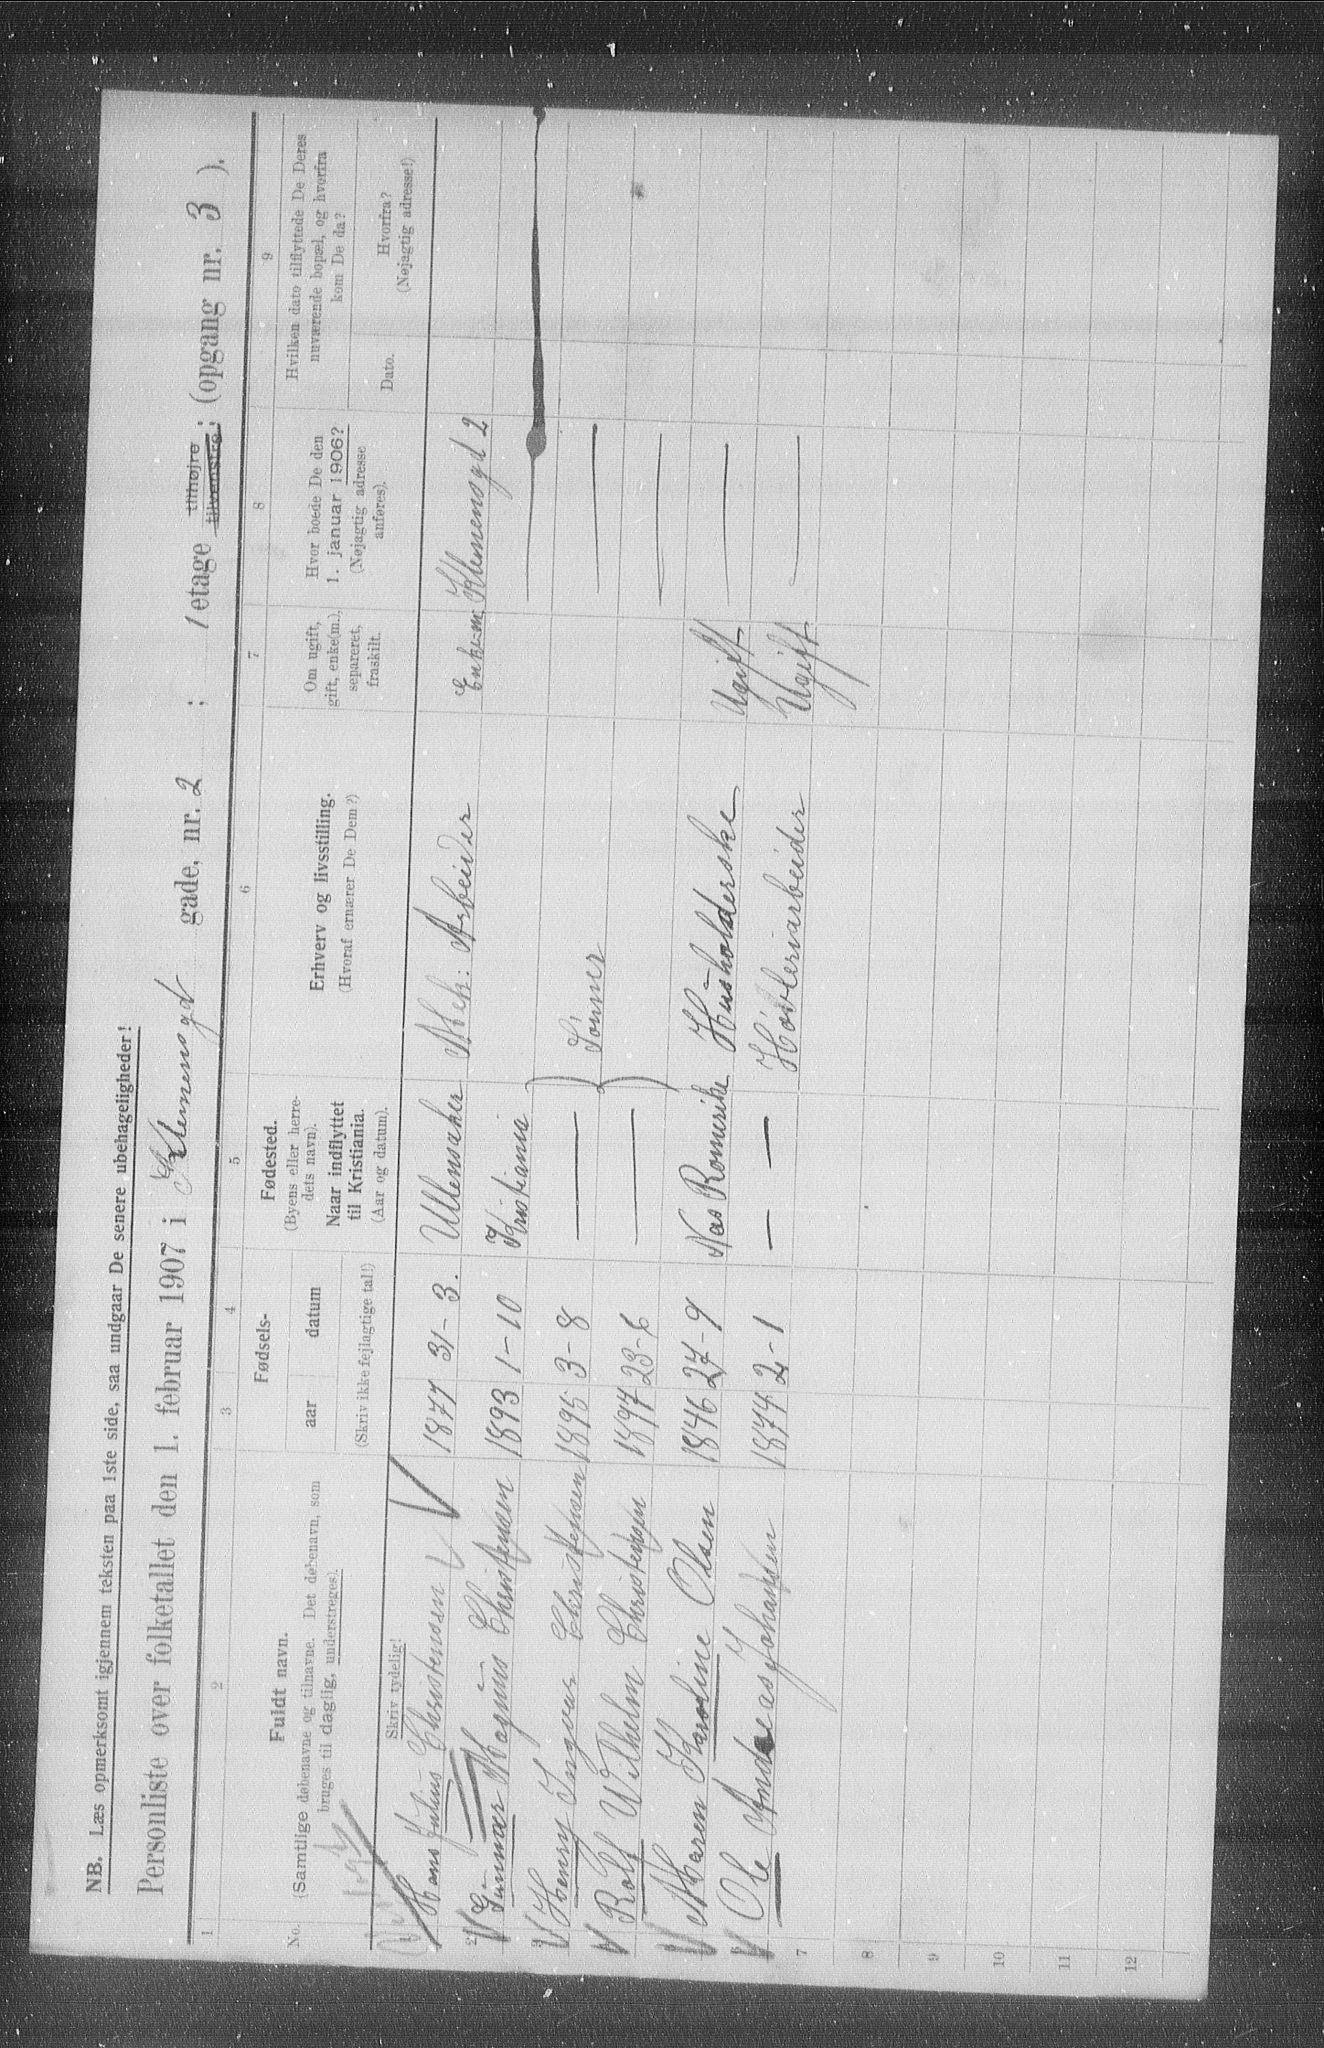 NB. Læs opmerksomt igjennem teksten paa 1ste side, saa undgaar De senere ubehageligheder!
Personliste over folketallet den 1. februar 1907 i Klemensgd gade, nr. 2 ; 1 etage tilhøjre tilvenstre; (opgang nr. 3 ).
1 2 3 4 5 6 7 8 9
No. Fuldt navn. (Samtlige døbenavne og tilnavne. Det døbenavn, som bruges til daglig, understreges). Skriv tydelig!
Fødsels- aar datum (Skriv ikke fejlagtige tal!)
Fødested. (Byens eller herredets navn). Naar indflyttet til Kristiania. (Aar og datum).
Erhverv og livsstilling. (Hvoraf ernærer De Dem?)
Om ugift, gift, enke(m.), separeret, fraskilt.
Hvor boede De den 1. januar 1906? (Nøjagtig adresse anføres).
Hvilken dato tilflyttede De Deres nuværende bopæl, og hvorfra kom De da?
Dato. Hvorfra? (Nøjagtig adresse!)
Hans Julius Christensen 1877 31-3. Ullensaker Mek: Arbeider Enkem. Klemensgd 2
2 Gunnar Magnus Christensen 1893 1-10 Kristiania
3 Henry Ingvar Christensen 1895 3-8 — Sönner —
Rolf Wilhelm Christensen 1897 23-6 — —
Maren Karoline Olsen 1846 27-9 Nes Romerike Husholderske Ugift —
Ole Andreas Johansen 1874 2-1 — — Høvleriarbeider Ugift —
7
8
9
10
11
12